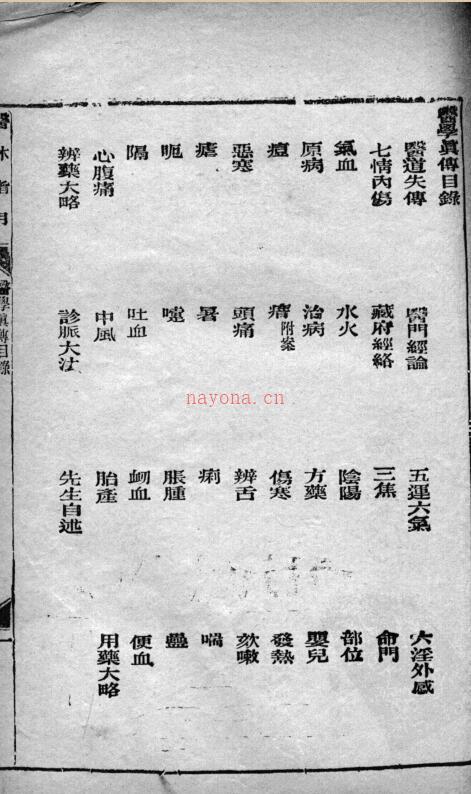 醫學眞傳目錄
醫道失傳 醫門經論 五運六氣 六淫外感
七情內傷 藏府經絡 三焦 命門
氣血 水火 陰陽 部位
原病 治病 方藥 嬰兒
痘 瘄附案 傷寒 發熱
惡寒 頭痛 辨舌 欬嗽
瘧 暑 痢 喘
呃 嚏 脹腫 蠱
隔 吐血 衂血 便血
心腹痛 中風 胎產 用藥大略
辨藥大略 診脈大法 先生自述
醫林指月
醫學眞傳目錄
nayona.cn